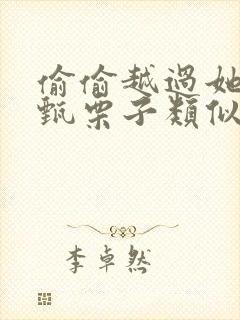 偷偷越過她
甄栗子類似
李卓然